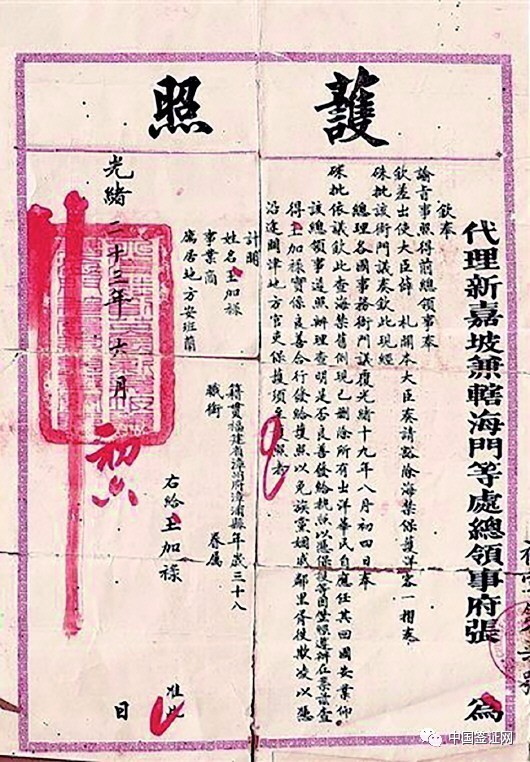 護照
代理新嘉坡兼轄海門等處總領事府張 為
欽奉
諭旨事照得前總領事奉
欽差出使大臣薛 札開本大臣奏請豁除海禁保護洋客一摺奉
硃批該衙門議奏欽此現經
總理各國事務衙門議覆光緒十九年八月初四日奉
硃批依議欽此查海禁舊例現已刪除所有出洋華民自應任其回國安業仰
該總領事遵照辦理查明是否良善發給執照以憑保護等因遵辦在案茲查
得王加祿實係良善合行發給護照以免族黨姻戚鄰里胥役欺凌以憑
沿途關津地方官吏保護須至護照者
計開
姓名王加祿 籍貫福建省漳州府漳浦縣年歲三十八
事業商 眷屬
寓居地方安班蘭 職銜
右給王加祿 准此
光緒二十三年六月初六 日
中国签证网